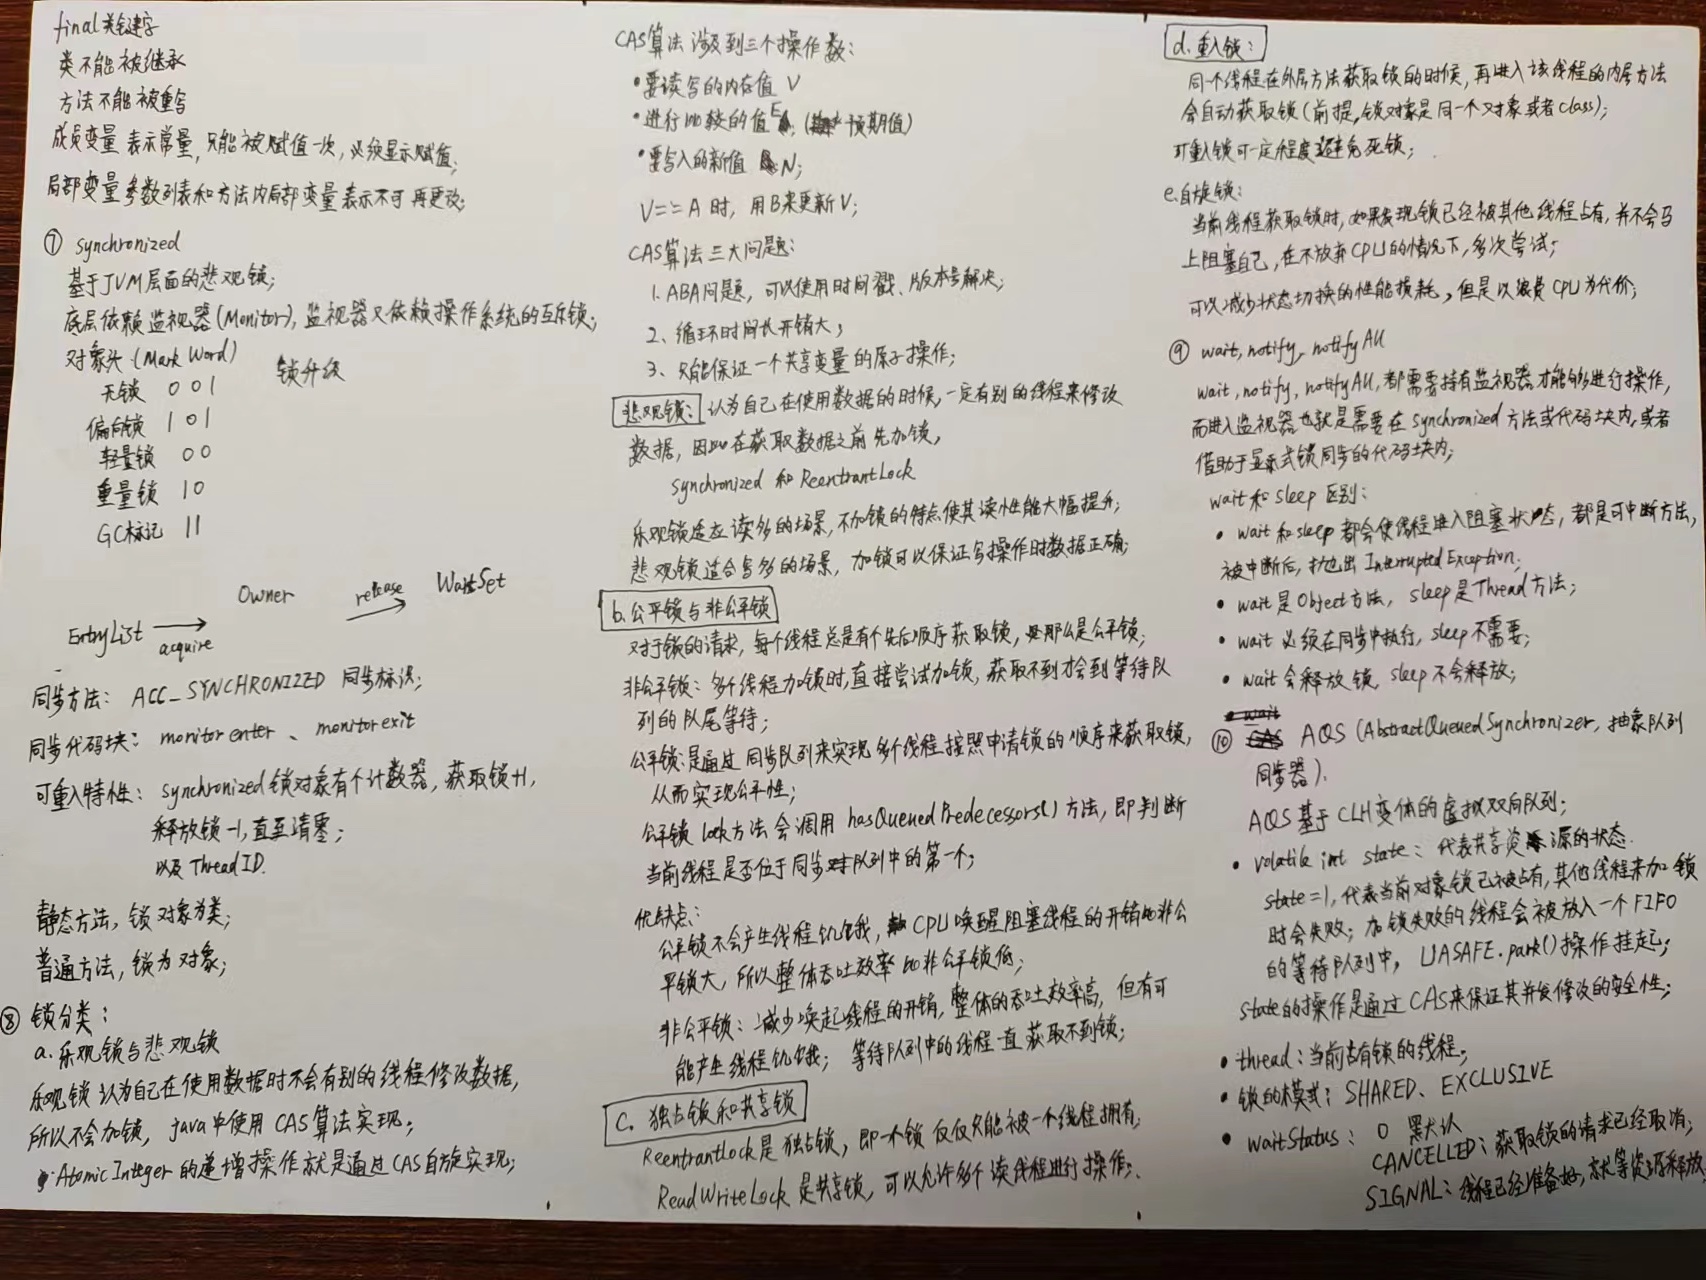 final关键字
类不能被继承
方法不能被重写
成员变量 表示常量,只能被赋值一次,必须显示赋值;
局部变量 参数列表和方法内局部变量 表示不可再更改;
⑦ synchronized
基于JVM层面的悲观锁;
底层依赖监视器(Monitor),监视器又依赖操作系统的互斥锁;
对象头(Mark Word) 锁升级
无锁 001
偏向锁 101
轻量锁 00
重量锁 10
GC标记 11
Owner release WaitSet
EntryList acquire
同步方法: ACC_SYNCHRONIZED 同步标识;
同步代码块: monitor enter、monitor exit
可重入特性: synchronized锁对象有个计数器,获取锁+1,
释放锁-1,直至清零;
以及ThreadID.
静态方法,锁对象为类;
普通方法,锁为对象;
⑧ 锁分类:
a.乐观锁与悲观锁
乐观锁认为自己在使用数据时不会有别的线程修改数据,
所以不会加锁,java中使用CAS算法实现;
AtomicInteger的递增操作就是通过CAS自旋实现;
CAS算法涉及到三个操作数:
•要读写的内存值 V
•进行比较的值E;(预期值)
•要写入的新值 N;
V==A时,用B来更新V;
CAS算法三大问题:
1.ABA问题,可以使用时间戳、版本号解决;
2、循环时间长开销大;
3、只能保证一个共享变量的原子操作;
悲观锁: 认为自己在使用数据的时候,一定有别的线程来修改
数据,因此在获取数据之前先加锁,
synchronized 和 ReentrantLock
乐观锁适应读多的场景,不加锁的特点使其读性能大幅提升;
悲观锁适合写多的场景,加锁可以保证写操作时数据正确;
b.公平锁与非公平锁
对于锁的请求,每个线程总是有个先后顺序获取锁,那么是公平锁;
非公平锁:多个线程加锁时,直接尝试加锁,获取不到才会到等待队
列的队尾等待;
公平锁:是通过同步队列来实现多个线程按照申请锁的顺序来获取锁,
从而实现公平性;
公平锁 lock方法会调用 hasQueuedPredecessors()方法,即判断
当前线程是否位于同步队列中的第一个;
优缺点:
公平锁不会产生线程饥饿, CPU唤醒阻塞线程的开销比非公
平锁大,所以整体吞吐效率比非公平锁低;
非公平锁:减少唤起线程的开销,整体的吞吐效率高,但有可
能产生线程饥饿;等待队列中的线程一直获取不到锁;
C. 独占锁和共享锁
ReentrantLock是独占锁,即一个锁仅仅只能被一个线程拥有,
ReadWriteLock是共享锁,可以允许多个读线程进行操作;
d.重入锁:
同一个线程在外层方法获取锁的时候,再进入该线程的内层方法
会自动获取锁(前提,锁对象是同一个对象或者class);
可重入锁可一定程度避免死锁;
e.自旋锁:
当前线程获取锁时,如果发现锁已经被其他线程占有,并不会马
上阻塞自己,在不放弃CPU的情况下,多次尝试;
可以减少状态切换的性能损耗,但是以浪费CPU为代价;
⑨ wait,notify,notifyAll
wait,notify,notifyAll,都需要持有监视器才能够进行操作,
而进入监视器也就是需要在synchronized方法或代码块内,或者
借助于显式锁同步的代码块内;
wait和sleep区别:
• wait和sleep都会使线程进入阻塞状态,都是可中断方法,
被中断后,抛出InterruptedException;
• wait是Object方法,sleep是Thread方法;
• wait必须在同步中执行,sleep不需要;
• wait会释放锁,sleep不会释放;
⑩ AQS(AbstractQueuedSynchronizer,抽象队列
同步器).
AQS基于CLH变体的虚拟双向队列;
• volatile int state:代表共享资源的状态.
state=1,代表当前对象锁已被占有,其他线程来加锁
时会失败;加锁失败的线程会被放入一个FIFO
的等待队列中,UASAFE.park()操作挂起;
state的操作是通过CAS来保证其并发修改的安全性;
• thread:当前占有锁的线程;
• 锁的模式:SHARED、EXCLUSIVE
• waitStatus: 0 默认
CANCELLED:获取锁的请求已经取消;
SIGNAL:线程已经准备好,就等资源释放